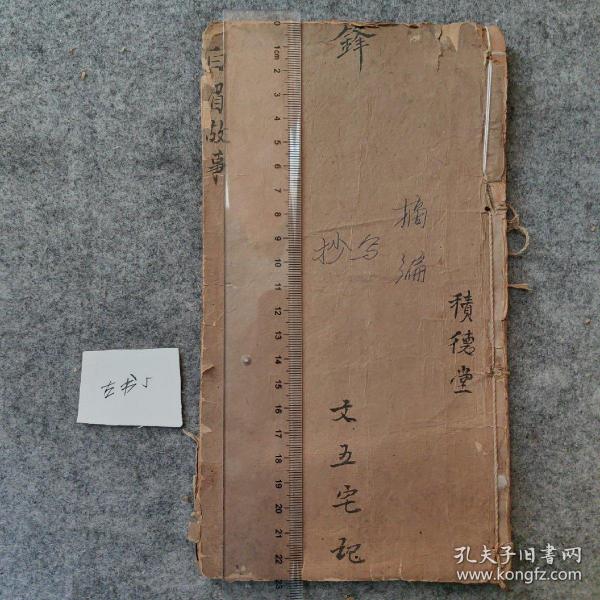 鋒
白眉故事
摘编
抄写
積德堂
文五宅記
古书5
0 1cm 2 3 4 5 6 7 8 9 10 11 12 13 14 15 16 17 18 19 20 21 22 23
孔夫子旧书网
www.kongfz.com